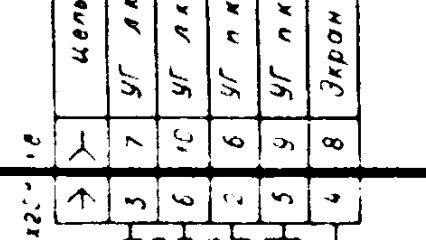 Цепь
3 7 УГ лк
6 10 УГ лк
2 6 УГ пк
5 9 УГ пк
4 8 Экран